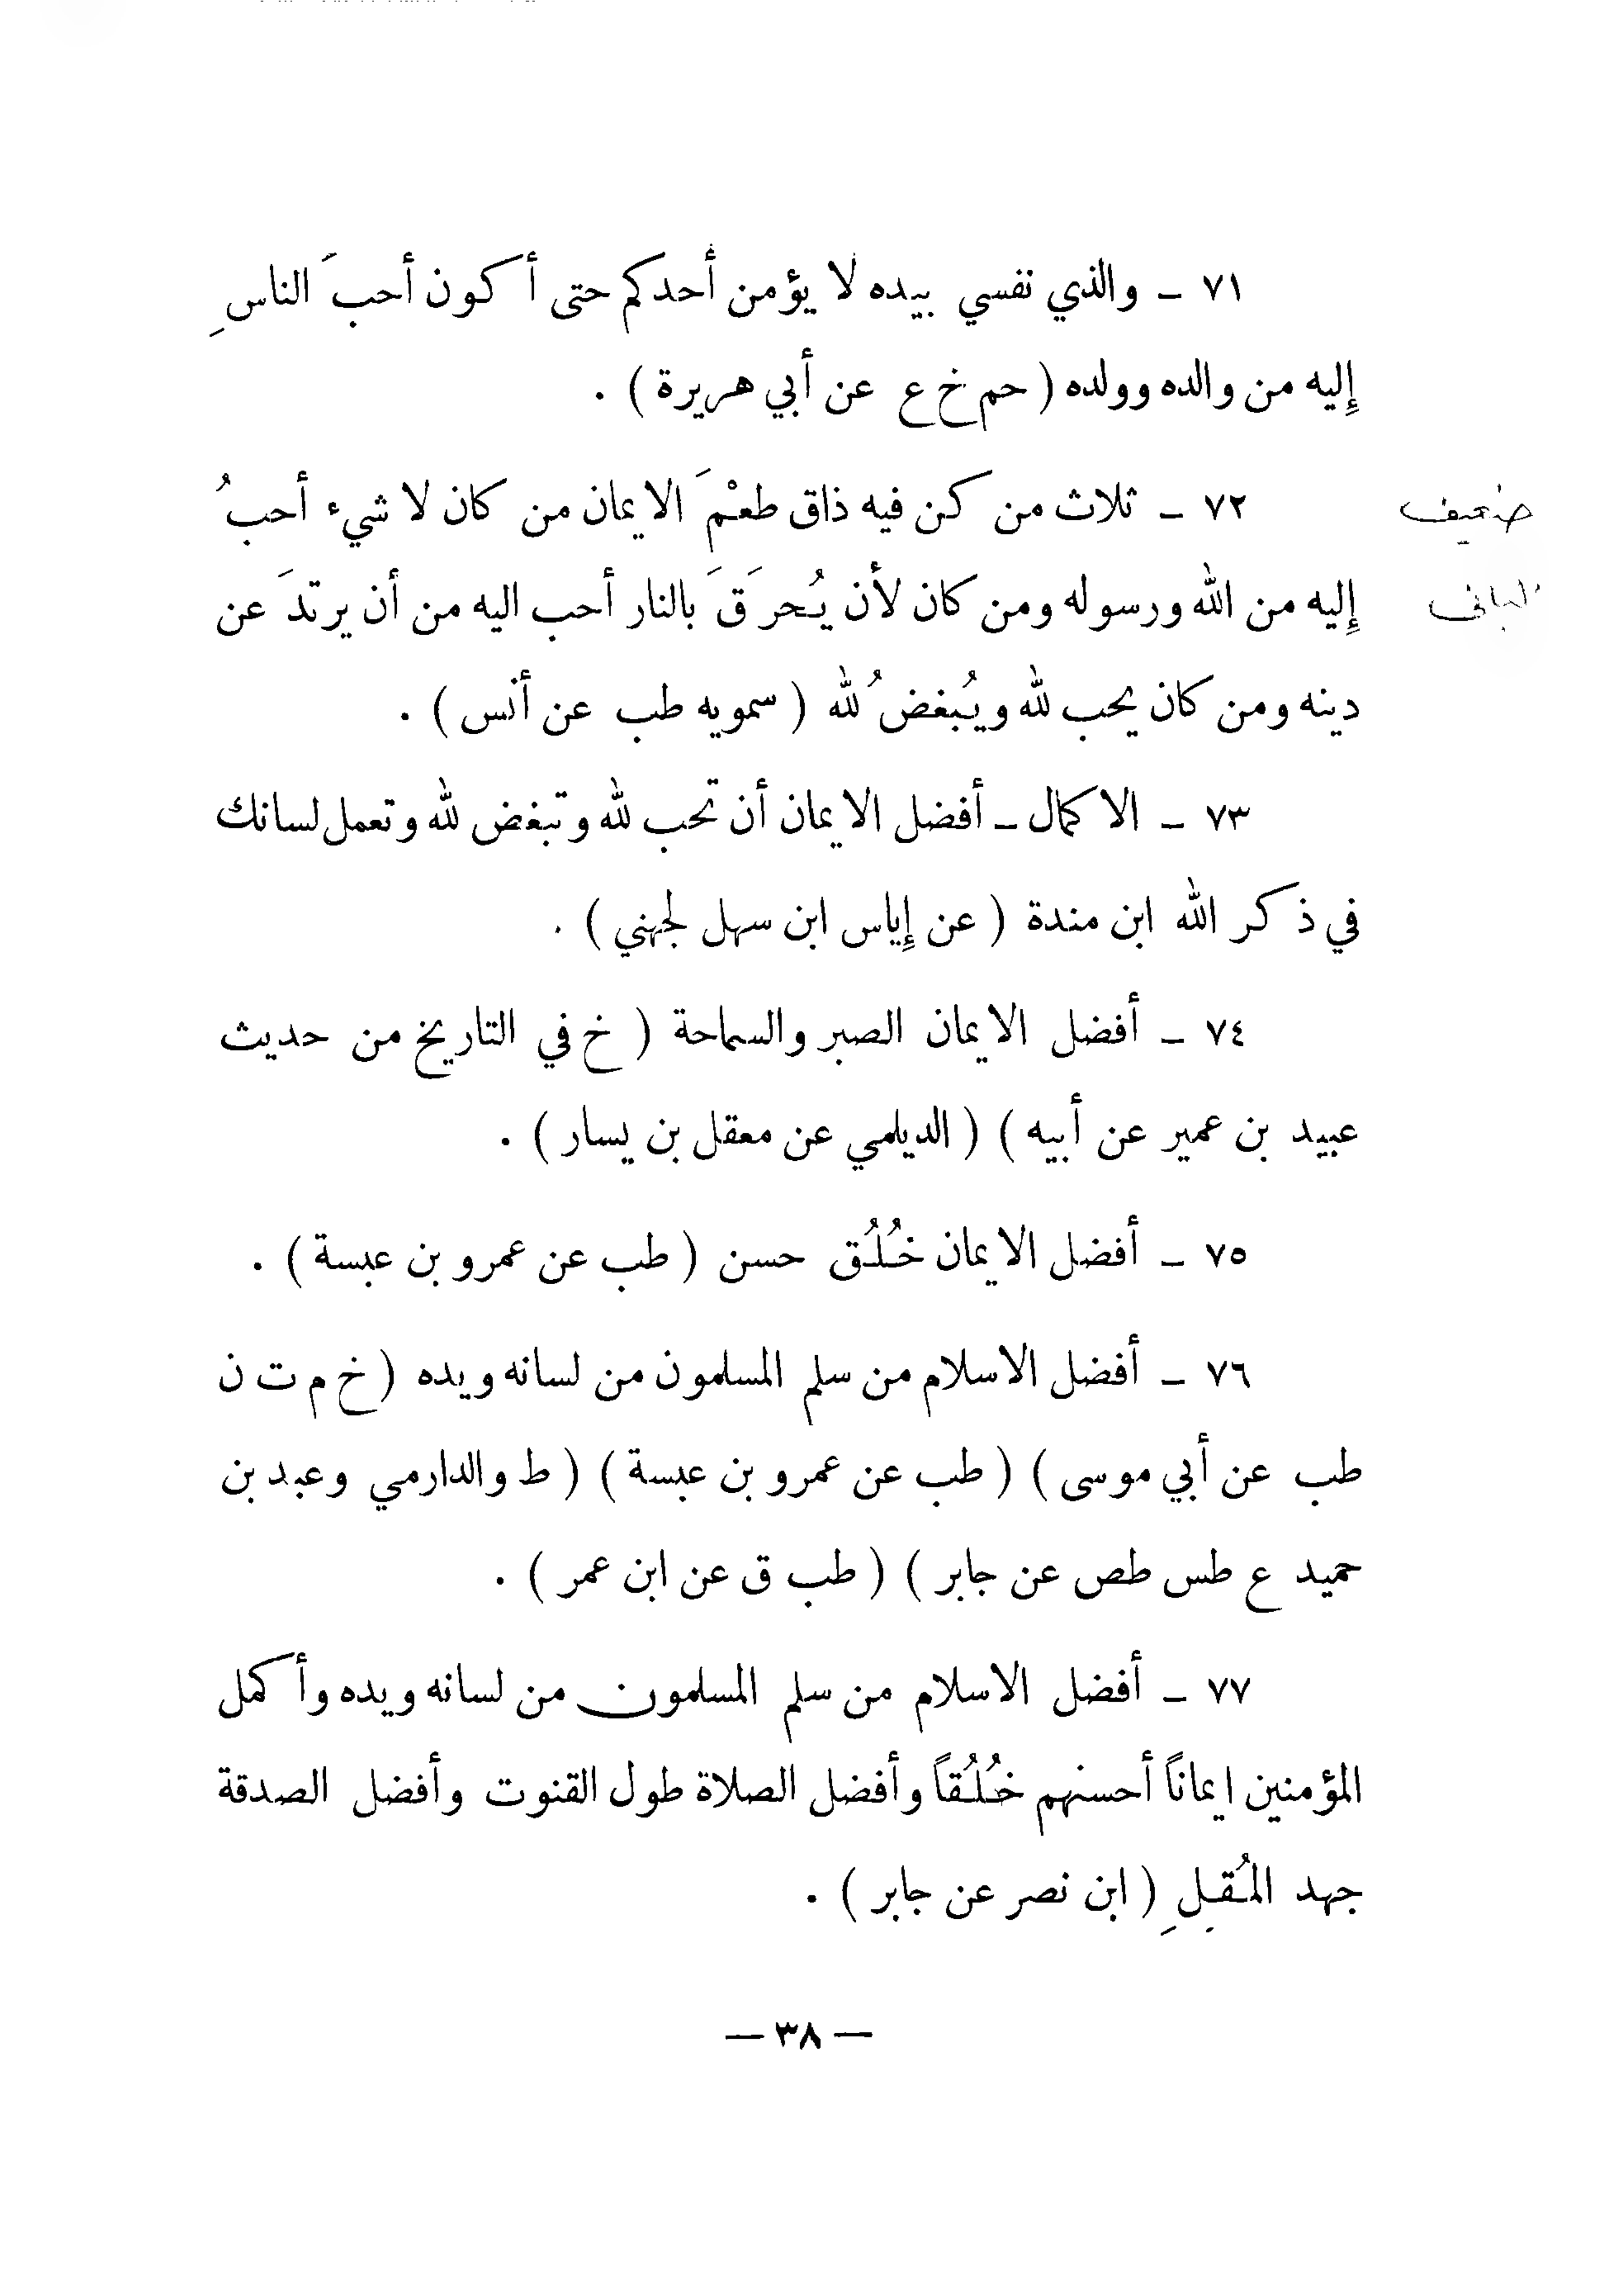 ٧١ ـ والذي نفسي بيده لا يؤمن أحدكم حتى أكون أحبَ الناسِ
إليه من والده وولده ( حم خ ع عن أبي هريرة ) .
٧٢ ـ ثلاث من كن فيه ذاق طعْمَ الايمان من كان لا شيء أحبُ
ضعيف
إليه من الله ورسوله ومن كان لأن يُحرَقَ بالنار أحب اليه من أن يرتدَ عن
دينه ومن كان يحب لله ويُبغضُ لله ( سمويه طب عن أنس ) .
٧٣ ـ الاكمال ـ أفضل الايمان أن تحب لله وتبغض لله وتعمل لسانك
في ذكر الله ابن مندة ( عن إياس ابن سهل لجهني ) .
٧٤ ـ أفضل الايمان الصبر والسماحة ( خ في التاريخ من حديث
عبيد بن عمير عن أبيه ) ( الديلمي عن معقل بن يسار ) .
٧٥ ـ أفضل الايمان خُلُق حسن ( طب عن عمرو بن عبسة ) .
٧٦ ـ أفضل الاسلام من سلم المسلمون من لسانه ويده ( خ م ت ن
طب عن أبي موسى ) ( طب عن عمرو بن عبسة ) ( ط والدارمي وعبد بن
حميد ع طس طص عن جابر ) ( طب ق عن ابن عمر ) .
٧٧ ـ أفضل الاسلام من سلم المسلمون من لسانه ويده وأكمل
المؤمنين ايماناً أحسنهم خُلُقاً وأفضل الصلاة طول القنوت وأفضل الصدقة
جهد المُقِلِ ( ابن نصر عن جابر ) .
— ٣٨ —